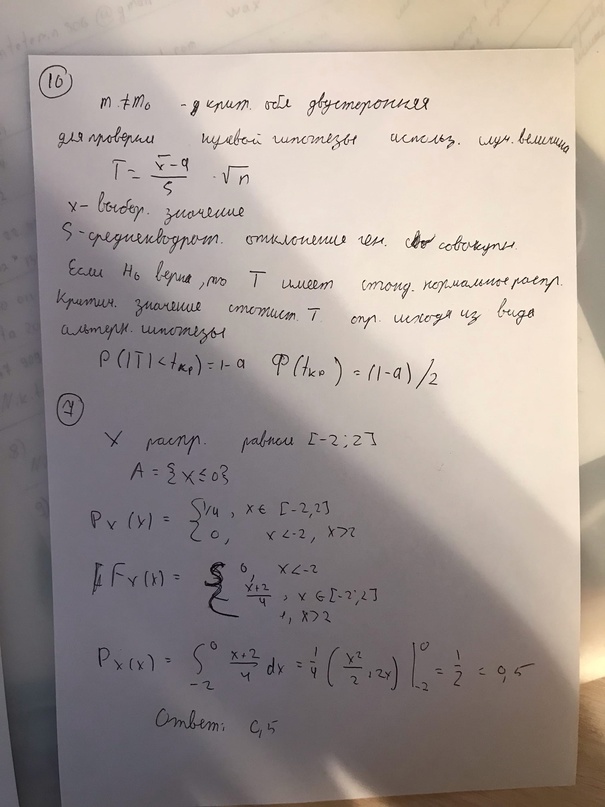 10
m ≠ m₀ - д крит. обл двусторонняя
для проверки нулевой гипотезы использ. случ. величина
T = (x̄ - a)/S · √n
x - выбор. значение
S - среднеквадрат. отклонение ген. совокупн.
Если H₀ верна, то T имеет станд. нормальное распр.
Критич. значение статист. T опр. исходя из вида
альтерн. гипотезы
P(|T| < tкр) = 1-a Ф(tкр) = (1-a)/2
7
X распр. равном [-2; 2]
A = {X ≤ 0}
Pₓ(x) = { 1/4, x ∈ [-2, 2]
0, x < -2, x > 2
Fₓ(x) = { 0, x < -2
(x+2)/4, x ∈ [-2; 2]
1, x > 2
Pₓ(x) = ∫₋₂⁰ (x+2)/4 dx = 1/4 (x²/2 + 2x) |₋₂⁰ = 1/2 = 0,5
Ответ: 0,5